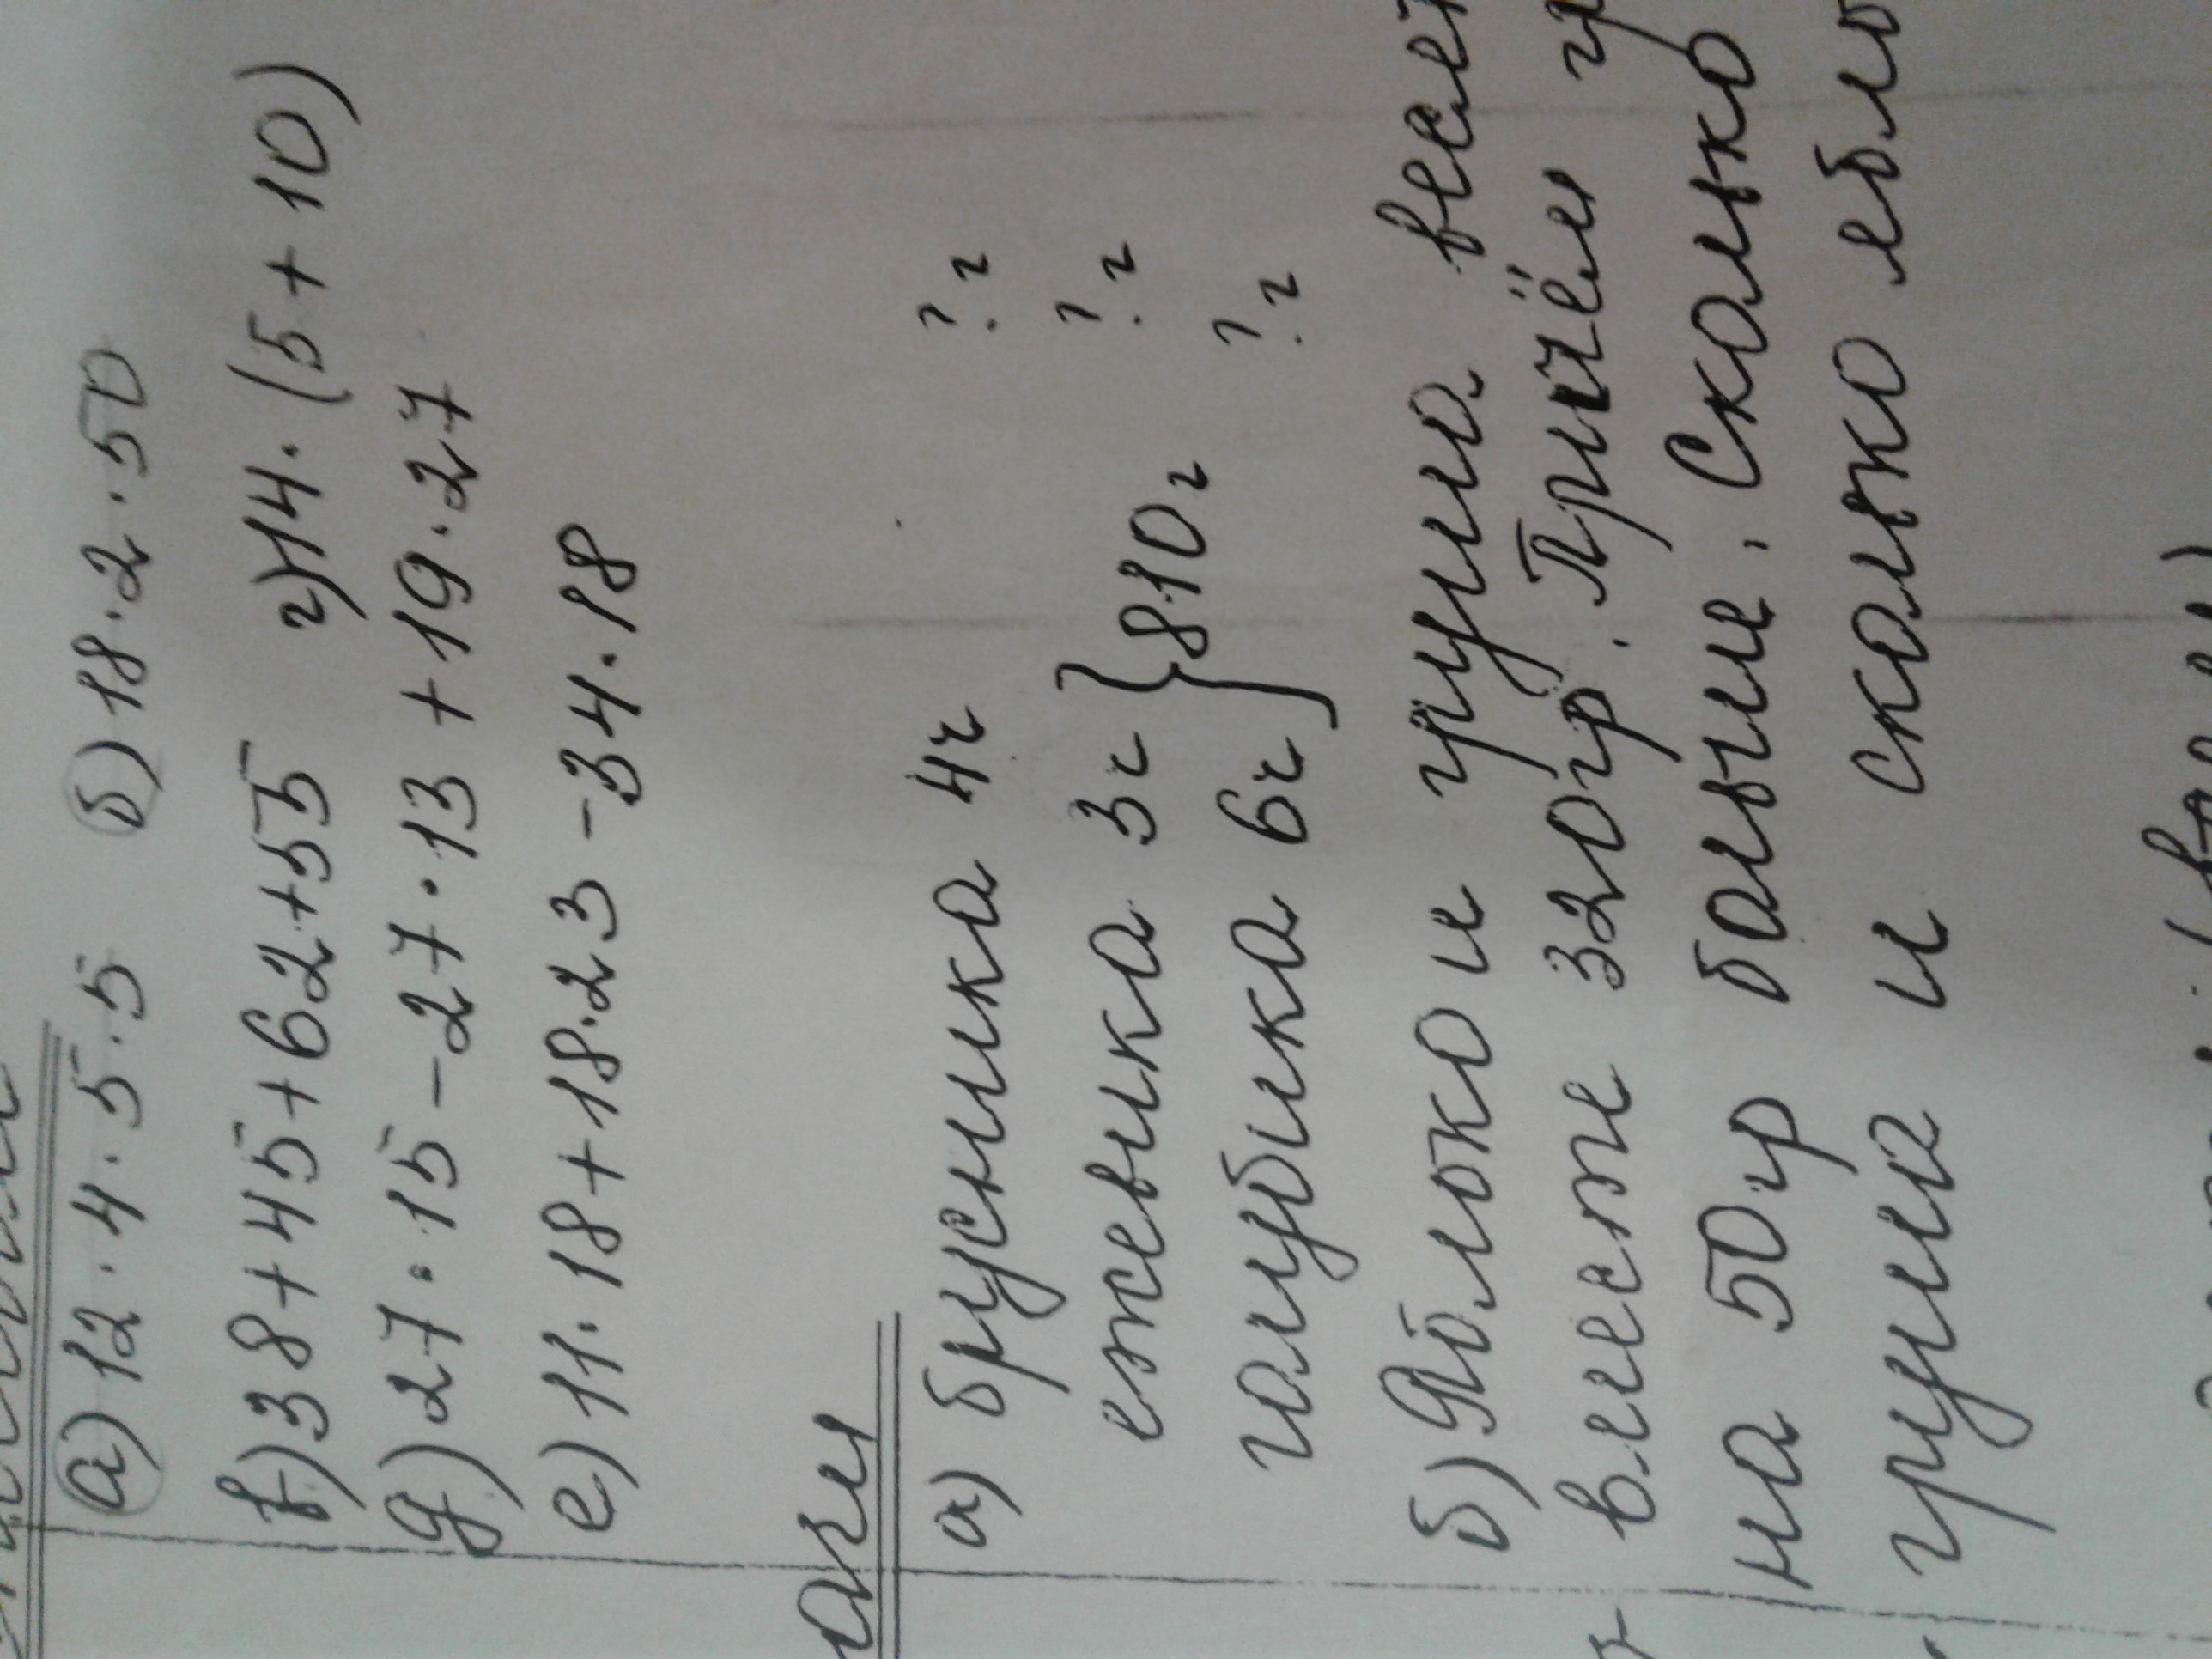 а) 12 · 4 · 5 · 5 б) 18 · 2 · 50
в) 38 + 45 + 62 + 55 г) 14 · (5 + 10)
д) 27 · 15 - 27 · 13 + 19 · 27
е) 11 · 18 + 18 · 23 - 34 · 18
а) брусника 4ч ? г
ежевика 3ч } 810г ? г
голубика 6ч ? г
б) Яблоко и груша
вместе 320гр. Причём
на 50гр больше. Сколько
груша и сколько